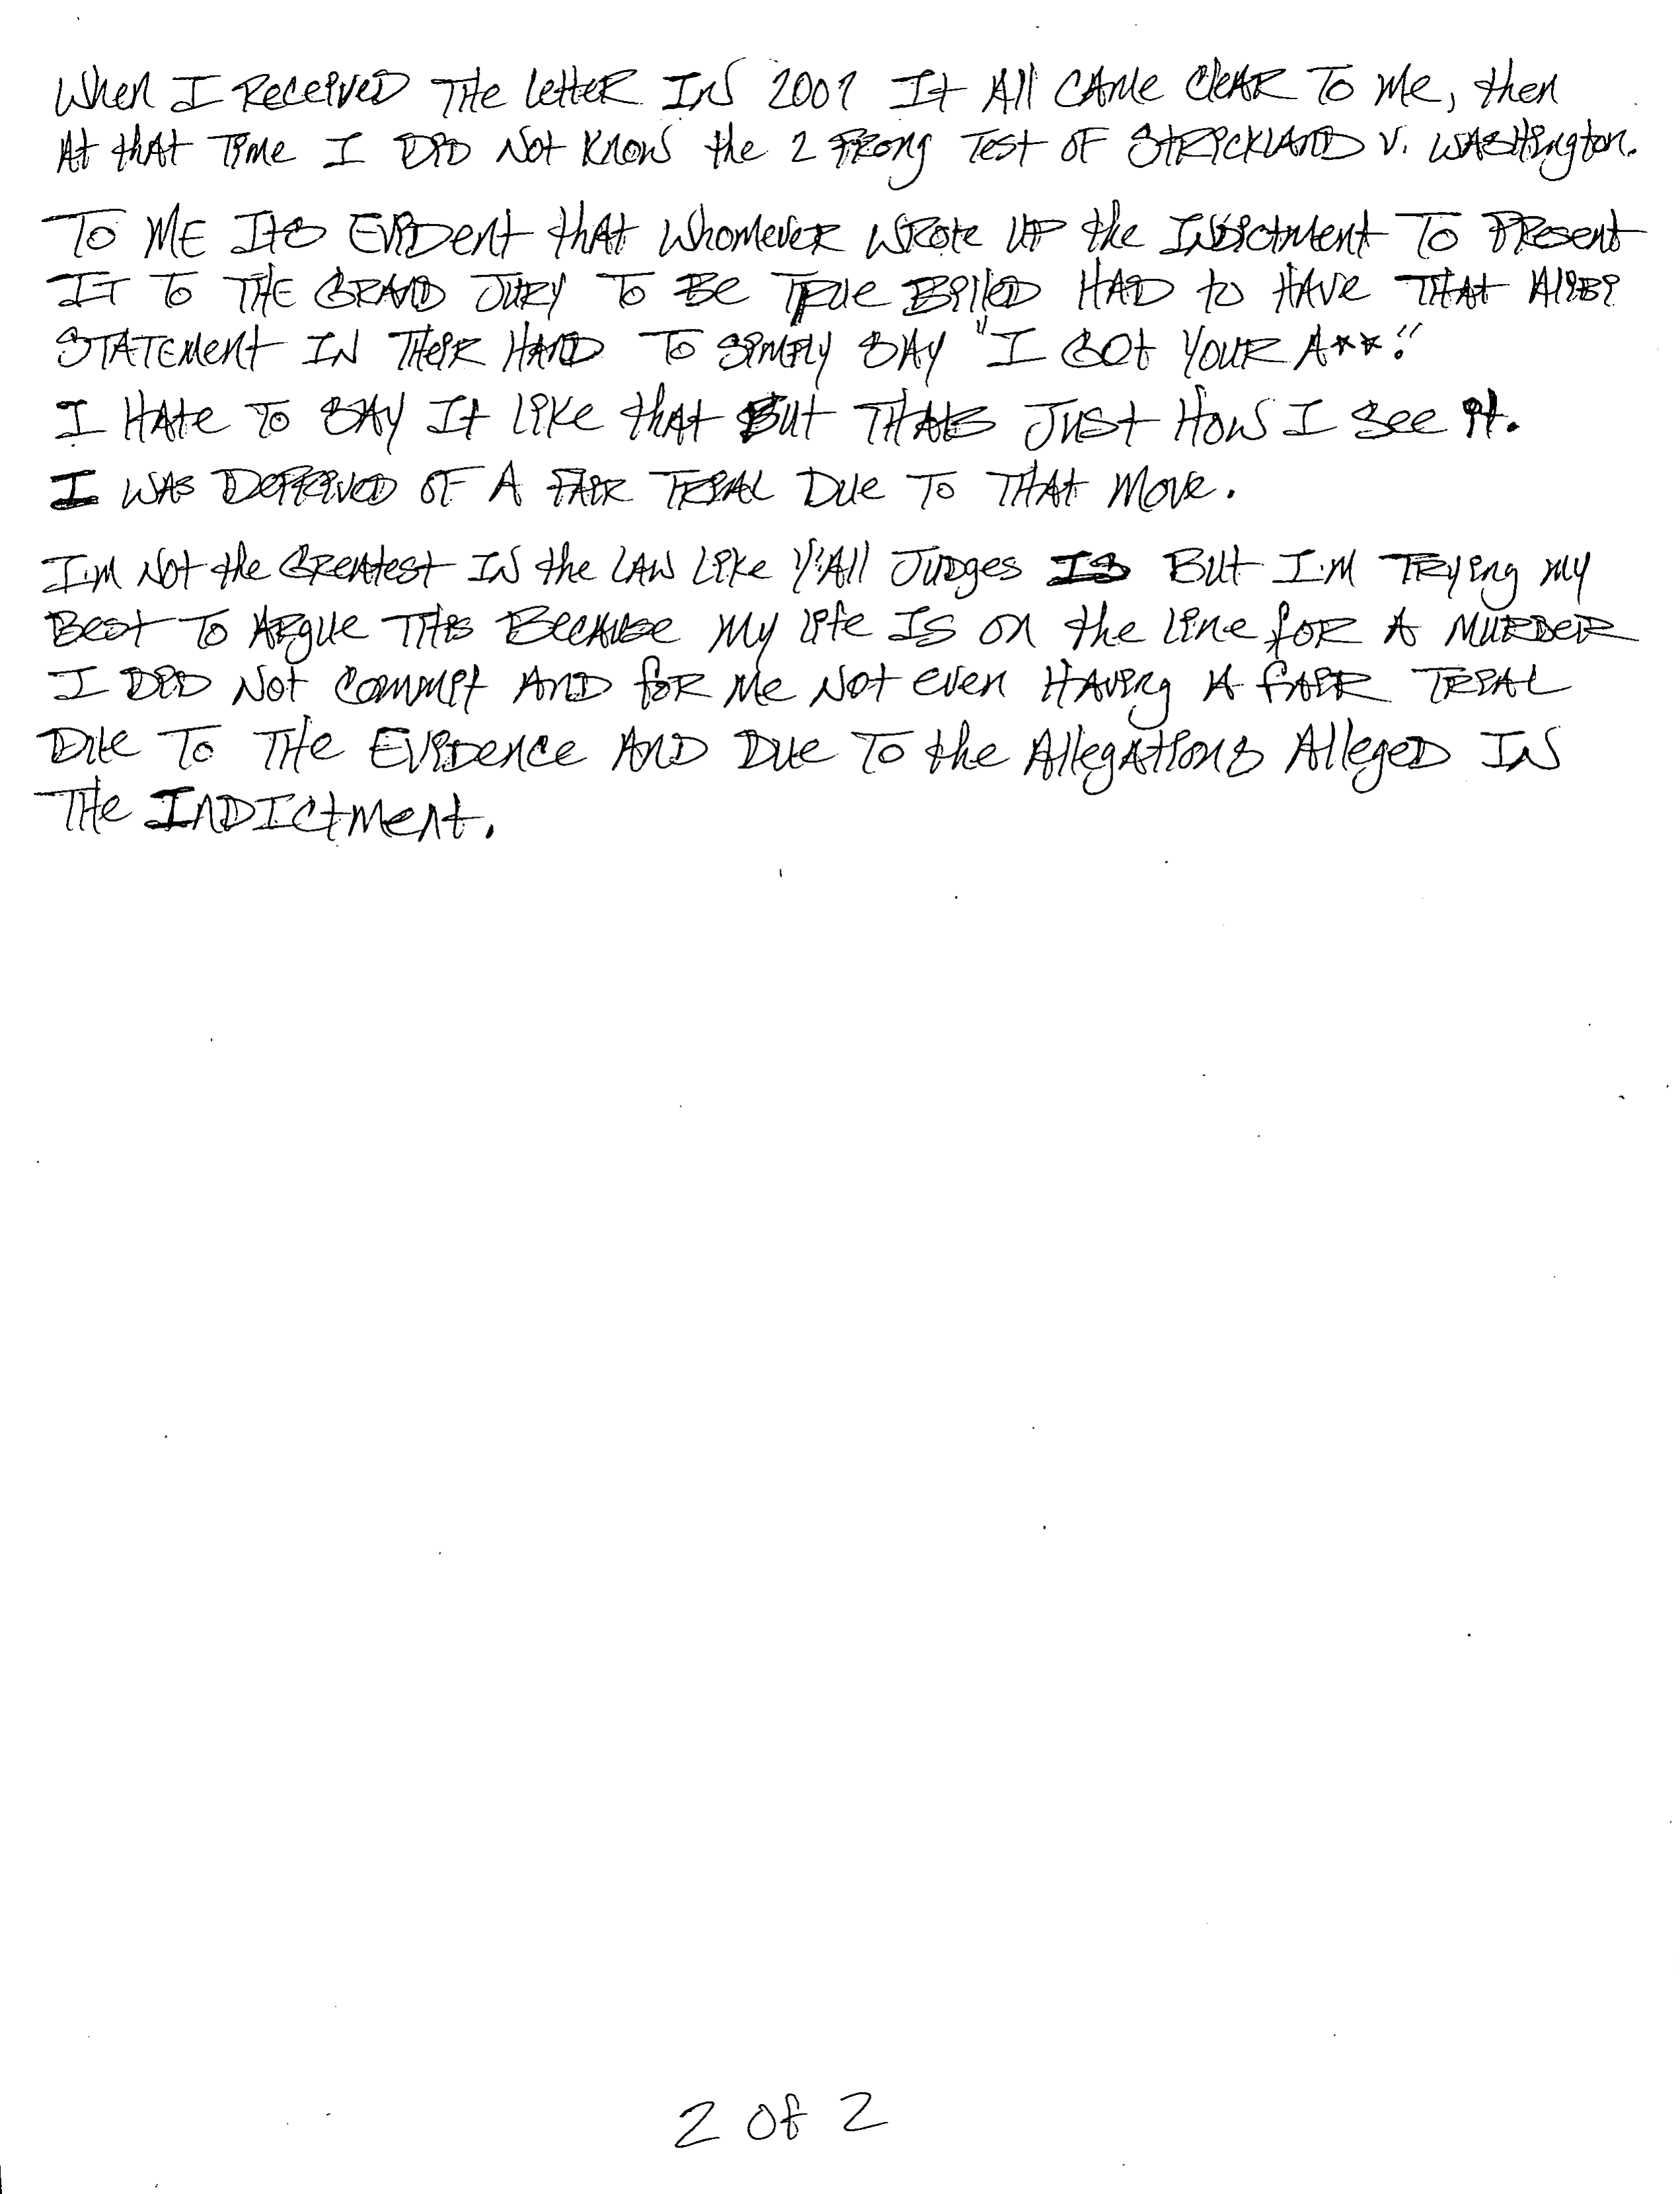 When I Received The Letter In 2007 It All Came Clear To Me, then
At that Time I Did Not Know the 2 Prong Test of Strickland v. Washington.
To Me Its Evident that Whomever Wrote up the Indictment To Present
It To The Grand Jury To Be True Billed Had to Have That Alibi
Statement In Their Hand To Simply Say "I Got Your A**."
I Hate To Say It Like that But Thats Just How I See it.
I Was Deprived of A Fair Trial Due To That Move.
I'm Not the Greatest In the Law Like Y'All Judges Is But I'm Trying My
Best To Argue This Because My Life Is on the Line for A Murder
I Did Not Commit And for Me Not even Having A fair Trial
Due To The Evidence And Due To the Allegations Alleged In
The Indictment.
2 of 2